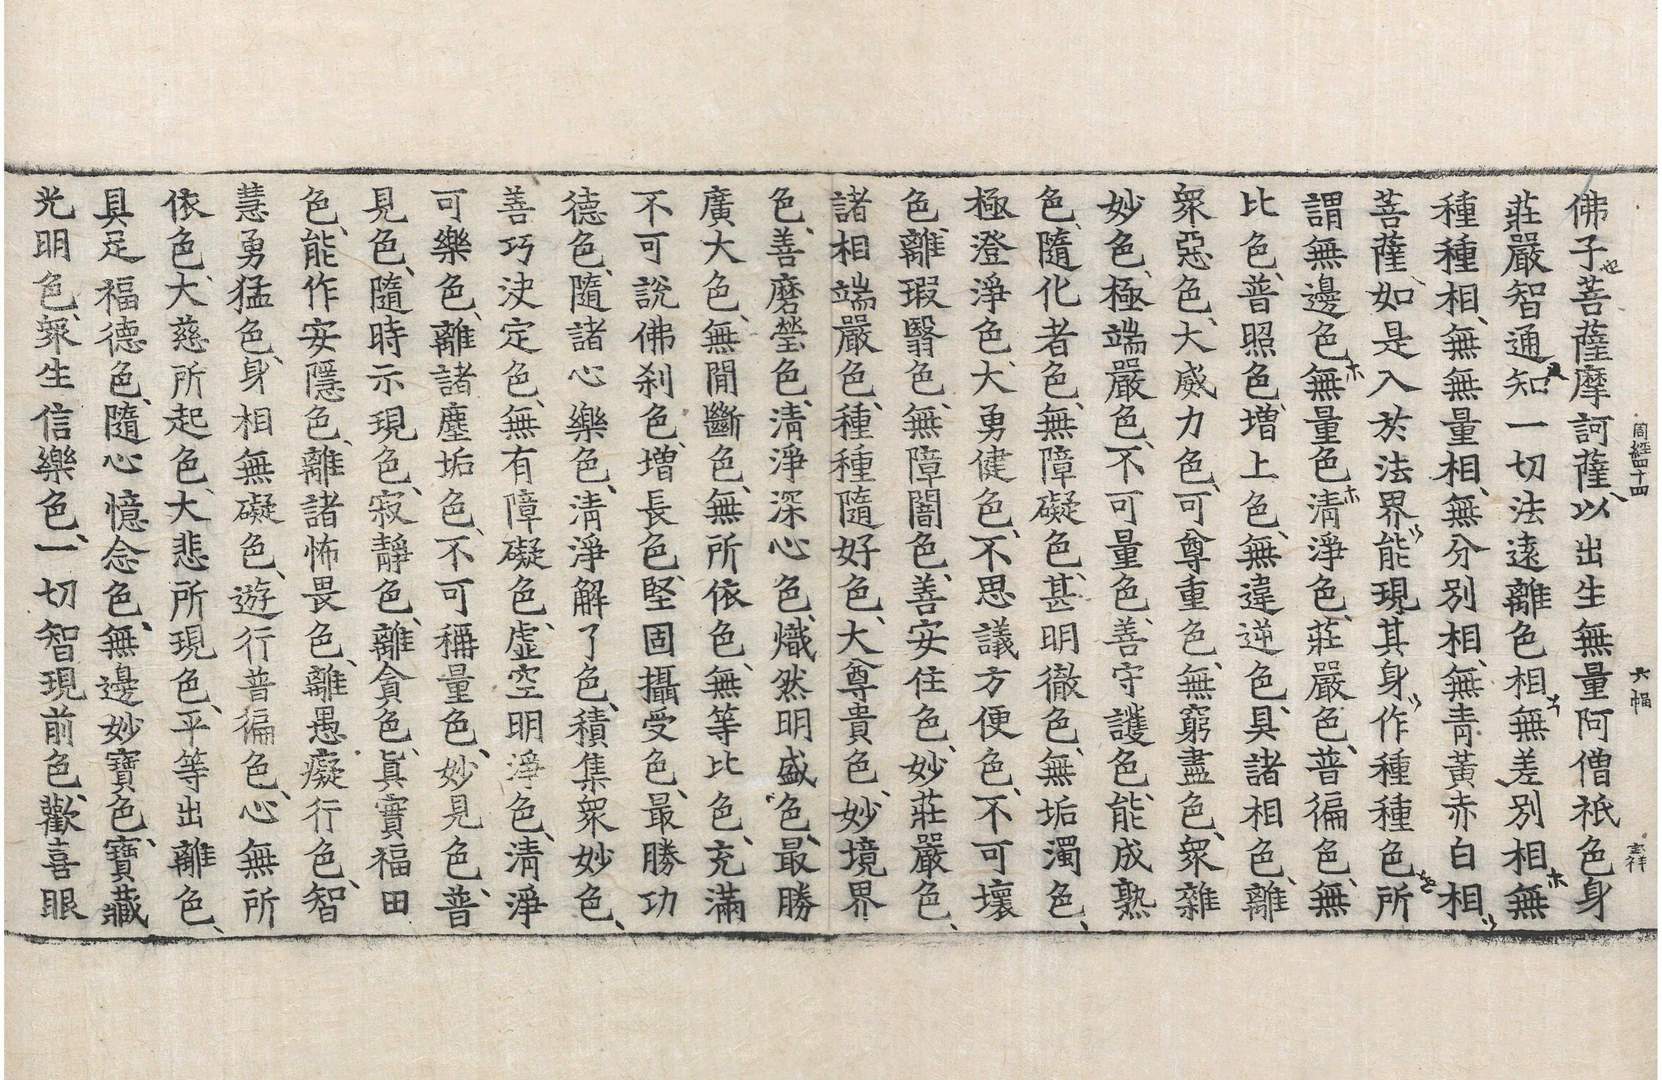 周經四十四　六幅　玄祥
佛子菩薩摩訶薩以出生無量阿僧祇色身
莊嚴智通知一切法遠離色相無差別相無
種種相無無量相無分別相無青黃赤白相
菩薩如是入於法界能現其身作種種色所
謂無邊色無量色清淨色莊嚴色普徧色無
比色普照色增上色無違逆色具諸相色離
衆惡色大威力色可尊重色無窮盡色衆雜
妙色極端嚴色不可量色善守護色能成熟
色隨化者色無障礙色甚明徹色無垢濁色
極澄淨色大勇健色不思議方便色不可壞
色離瑕翳色無障闇色善安住色妙莊嚴色
諸相端嚴色種種隨好色大尊貴色妙境界
色善磨瑩色清淨深心色熾然明盛色最勝
廣大色無間斷色無所依色無等比色充滿
不可說佛刹色增長色堅固攝受色最勝功
德色隨諸心樂色清淨解了色積集衆妙色
善巧決定色無有障礙色虛空明淨色清淨
可樂色離諸塵垢色不可稱量色妙見色普
見色隨時示現色寂靜色離貪色眞實福田
色能作安隱色離諸怖畏色離愚癡行色智
慧勇猛色身相無礙色遊行普徧色心無所
依色大慈所起色大悲所現色平等出離色
具足福德色隨心憶念色無邊妙寶色寶藏
光明色衆生信樂色一切智現前色歡喜眼